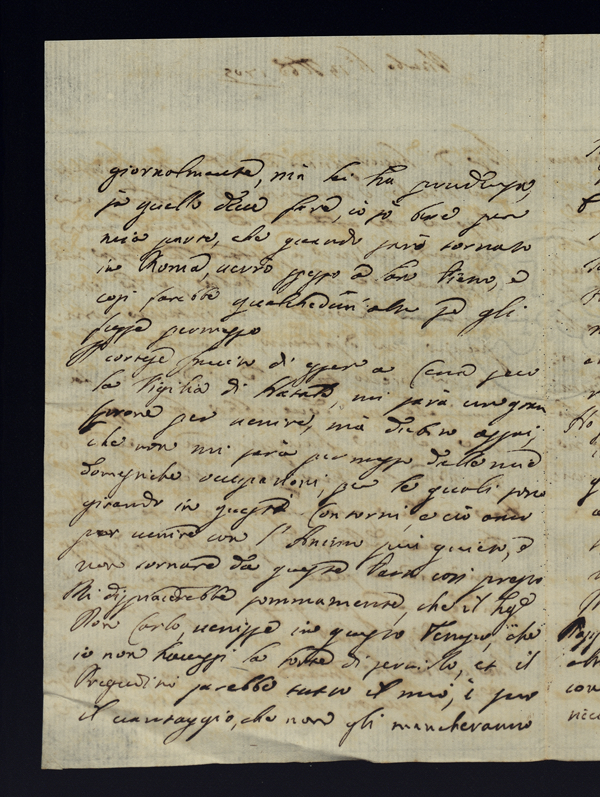 giornalmente, mà lei hà prudenza,
sà quello deve fare, io sò bene per
mia parte, che quando sarò tornato
in Roma, verrò spesso à
così farebbe qualchedun'altro se gli
fosse permesso
cortese invito di essere a Cena seco
la Vigilia di Natale, mi sarà un gran
sprone per venire, mà dubito assai,
che non mi sarà permesso dalle mie
domestiche occupazioni, per le quali sono
girando in questi Contorni, e ciò anco
per venire con l'Animo più quieto, e
non tornare da queste parti così presto
Mi dispiacerebbe sommamente, che il
Don Carlo, venisse in questo Tempo, che
io non havessi la sorte di servirlo, et il
Pregiudizio sarebbe tutto il mio, è
il vantaggio, che non gli mancheranno